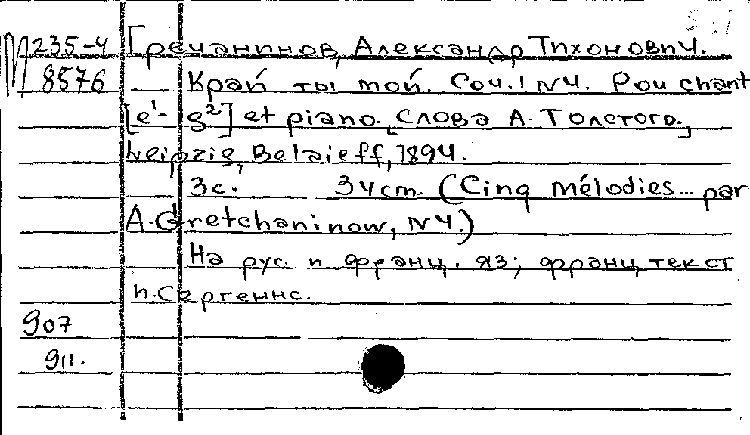 М 235-4 Гречанинов, Александр Тихонович.
8576 Край ты мой. Соч.1 N4. Pou chant
[e¹-g²] et piano. [Слова А. Толстого.]
Leipzig, Belaieff, 1894.
3с. 34cm. (Cinq mélodies... par
A. Gretchaninow, N4.)
На рус. и франц. яз; франц. текст
h. Сергеннс.
907
911.